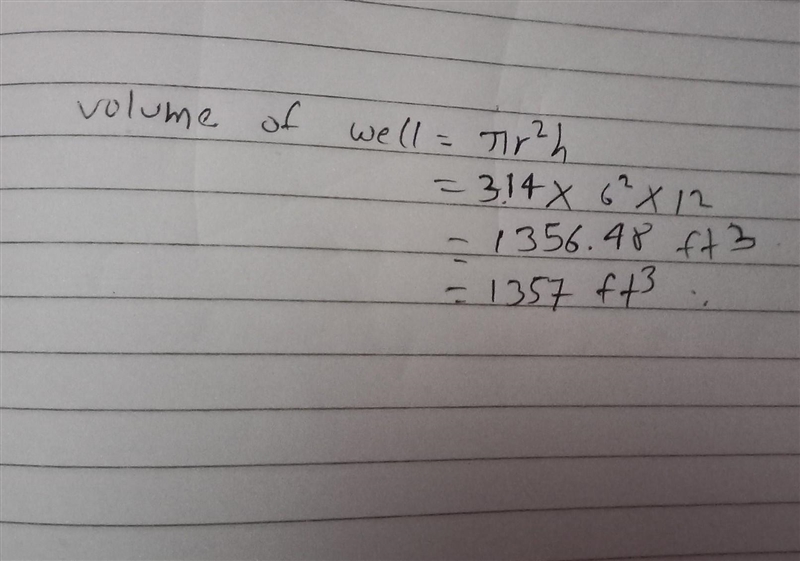 volume of well = πr²h
= 3.14 × 6² × 12
= 1356.48 ft3
= 1357 ft³ .